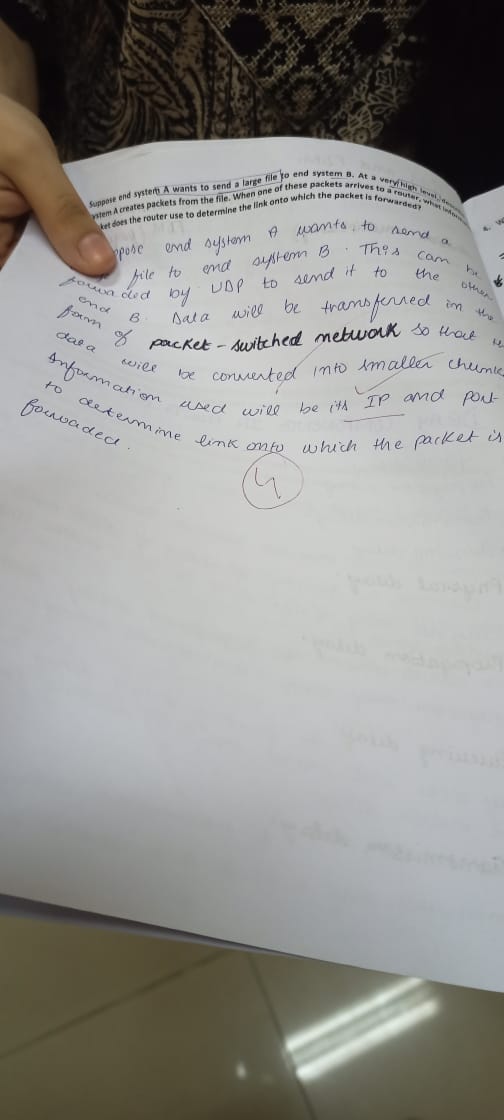 Suppose end system A wants to send a large file to end system B. At a very high level,
system A creates packets from the file. When one of these packets arrives to a router, what
does the router use to determine the link onto which the packet is forwarded?
end system A wants to send a
file to end system B. This can be
forwarded by UDP to send it to the other
end B. Data will be transferred in the
form of packet-switched network so that
data will be converted into smaller chunks
Information used will be its IP and port
to determine link onto which the packet is
forwaded.
4
Physical delay
Propagation delay
delay
Transmission delay